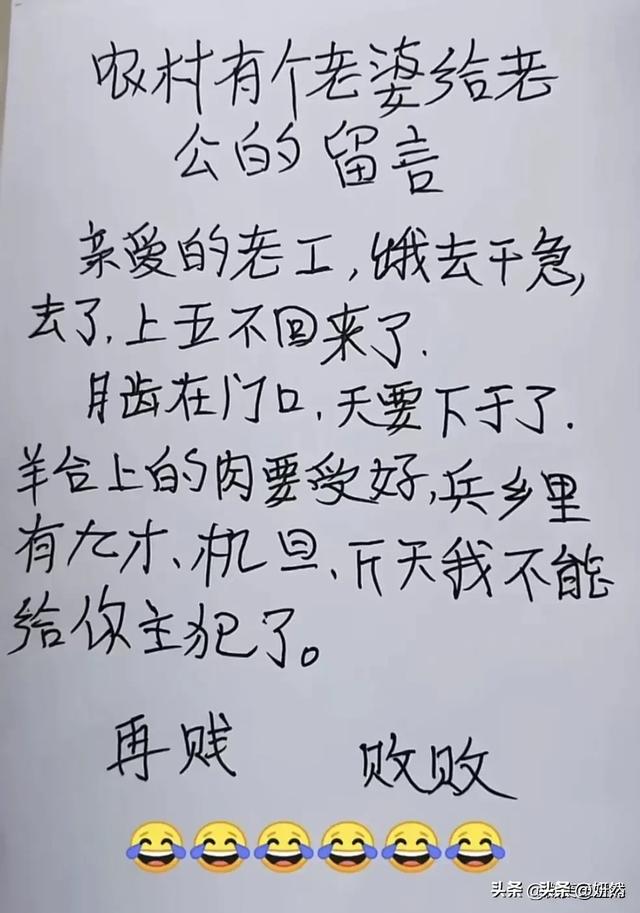 农村有个老婆给老
公的留言
亲爱的老工,饿去干急,
去了.上五不回来了.
月齿在门口.天要下于了.
羊台上的肉要受好,兵乡里
有九才、机旦、斤天我不能
给你主犯了。
再贱 败败
😂😂😂😂😂😂
头条 @妍然